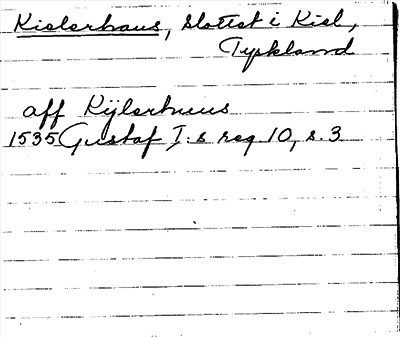 Kielerhaus, slottet i Kiel,
Tyskland
aff Kijlerhuus
1535 Gustaf I:s reg 10, s. 3